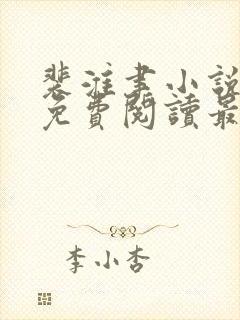 裴淮書小說
免費閱讀最
李小杏